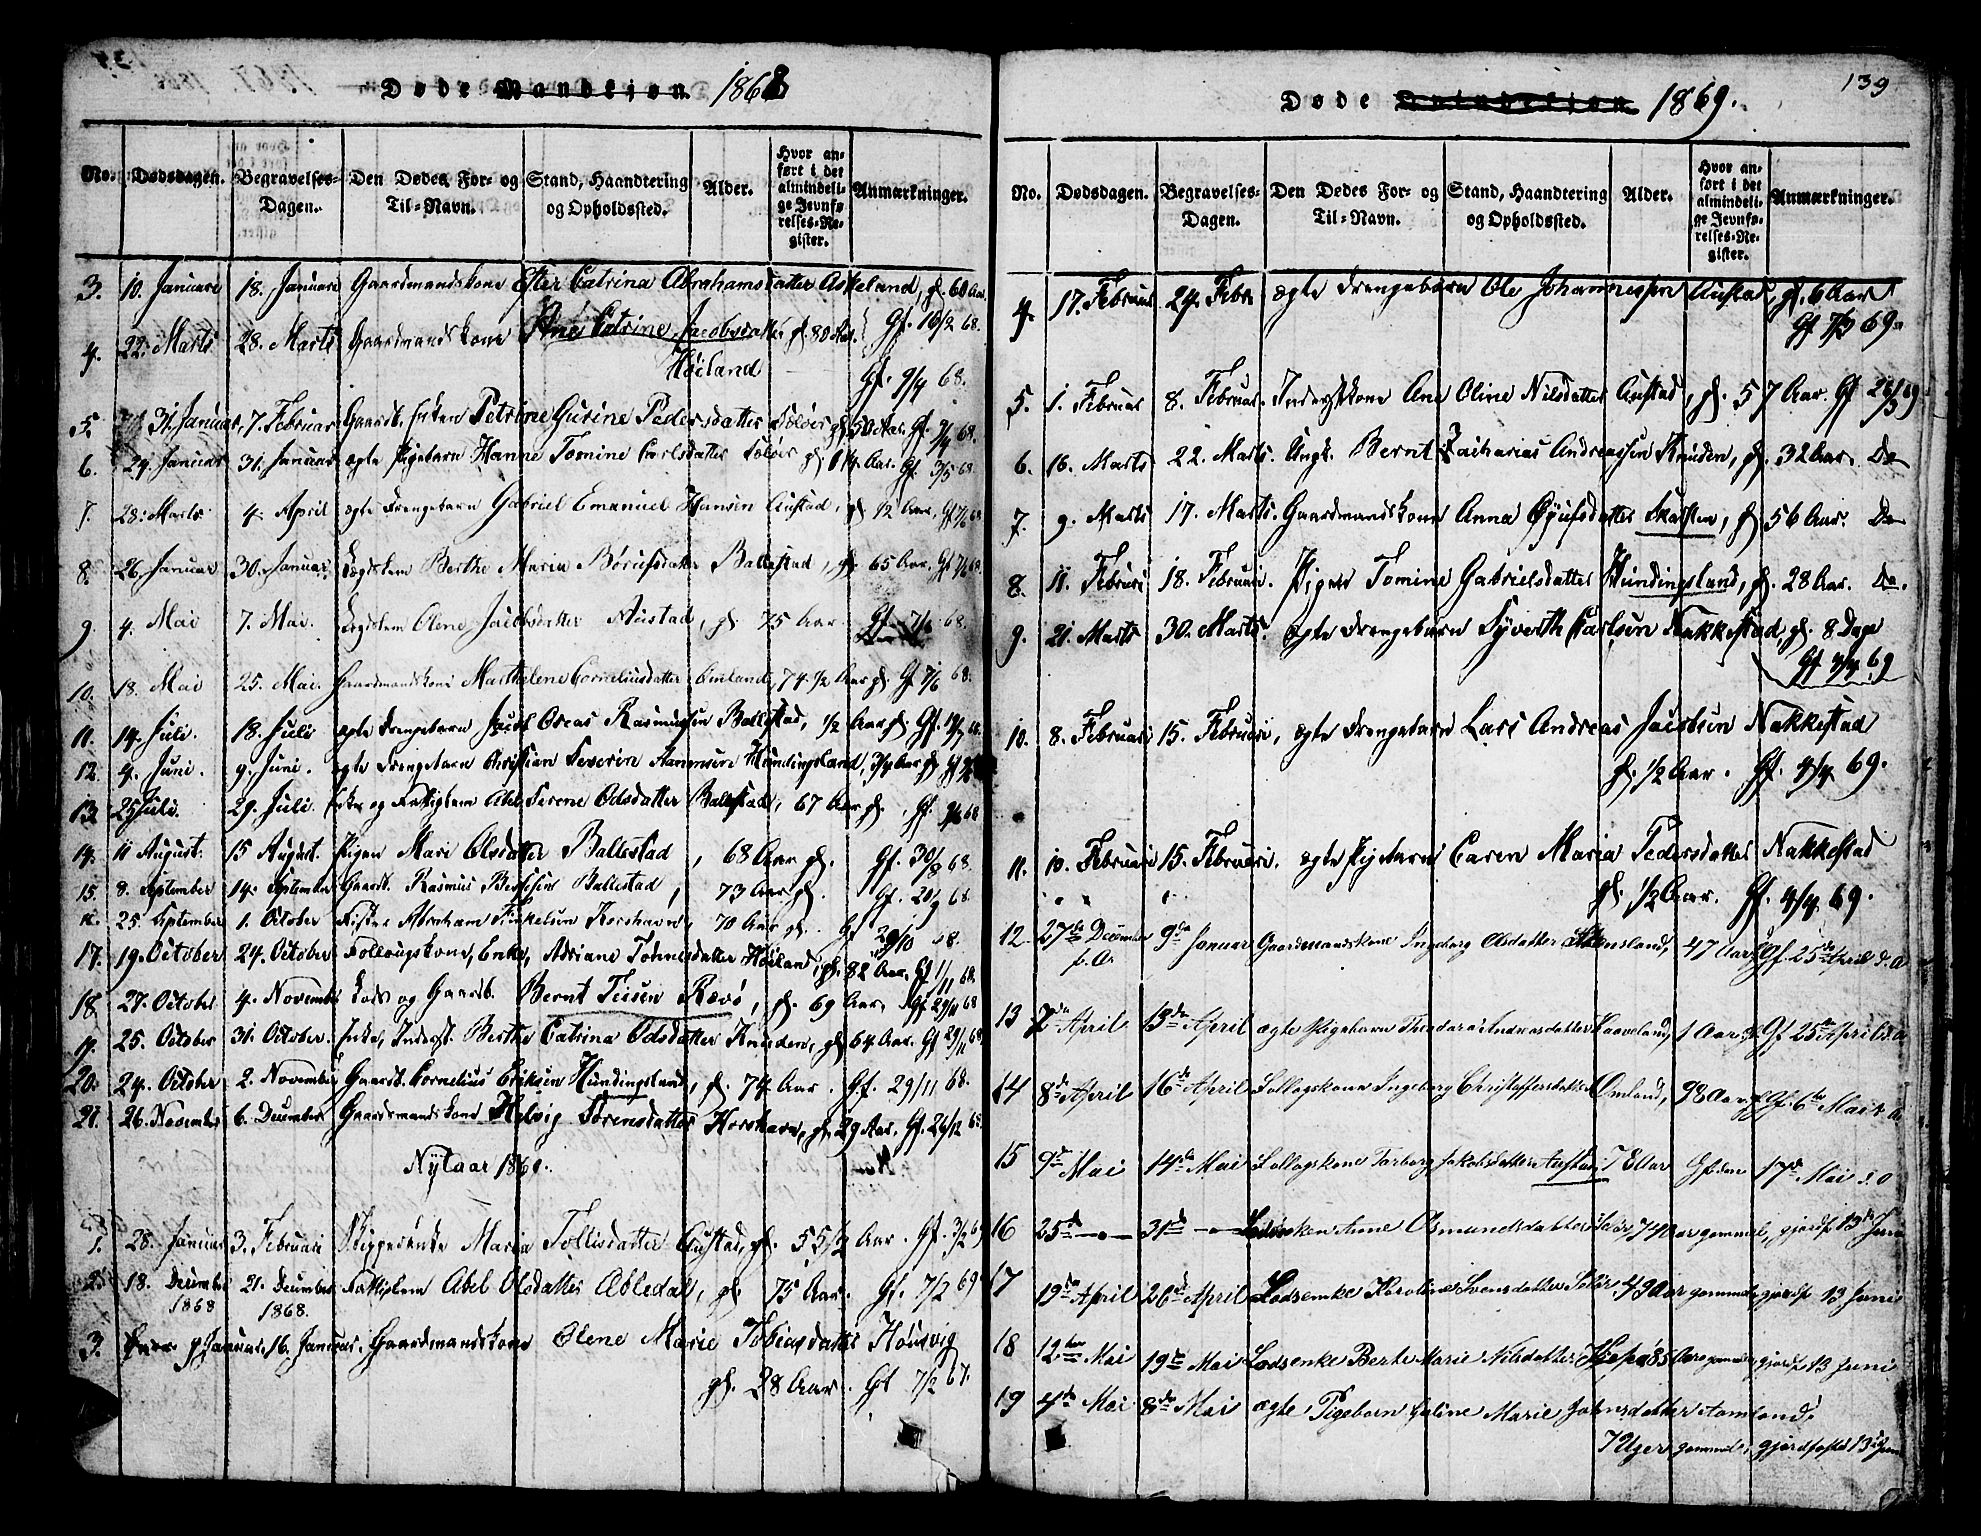 Døde Mandkiøn. 1868
No. Dødsdagen. Begravelses-Dagen. Den Dødes For- og Til-Navn. Stand, Haandtering og Opholdssted. Alder. Hvor anført i det almindelige Jevnførelses-Register. Anmærkninger.
3. 10. Januari 18. Januari Gaardmandskone Ester Catrina Abrahamsdatter Askeland, gl. 60 Aar.
4. 22. Marts 28. Marts Gaardmandskone Ane Catrine Jacobsdatter gl. 80 Aar. Gf. 16/2 68.
Høiland Gf. 9/4 68.
5. 31. Januar, 7. Februar Gaardb. Enken Petrine Gurine Pedersdatter gl. 50 Aar. Gf. 68.
6. 24. Januar 31. Januar ægte Pigebarn Hanne Tomine Carlsdatter gl. Aar. Gf. 3/5 68.
7. 28. Marts 4. April ægte Drengebarn Gabriel Emanuel Hansen Austad, gl. 12 Aar, Gf 7/6 68
8. 26. Januar 30. Januar Lægdslem Berthe Maria Datter Ballestad, gl. 65 Aar, Gf 7/6 68.
9. 4. Mai 7. Mai. Lægdslem Olene Jacobsdatter Austad, gl. 75 Aar. Gf. 7/6 68.
10. 18. Mai 25. Mai. Gaardmandskone Marthelene Corneliusdatter Omland, 74 1/2 Aar gl. Gf 7/6 68.
11. 14. Juli. 18. Juli ægte Drengebarn Jacob Oreas Rasmussen Ballestad, 1/2 Aar gl. Gf. 68.
12. 4. Juni. 9. Juni. ægte Drengebarn Christian Severin Aanonsen Hundingsland, 3/4 Aar gl Gf
13. 25 Juli. 29. Juli. Enke og Fattiglem Abel Serene Odsdatter Ballestad, 67 Aar gl., Gf. 68
14. 11 August. 15 August. Pigen Mari Olsdatter Ballestad, 68 Aar gl. Gf. 30/8 68.
15. 8. September 14. September Gaardb. Rasmus Ballestad, 73 Aar gl. Gf. 20/9 68.
25. September 1. October Abraham Korshavn, 70 Aar gl. Gf 29/10 68.
17. 19. October 24. October Follougskone, Enke, Adriane Tønnesdatter Høiland, gl. 82 Aar. Gf 1/11 68.
18 27. October 4. November Lods og Gaardb. Bernt Teisen Rævø, gl. 69 Aar. Gf 29/11 68
19. 25. October 31. October. Enke, Inderst. Berthe Catrina Odsdatter Knuden, gl. 64 Aar. Gf 29/11 68
20. 24. October 2. November Gaardb. Cornelius Eriksen Hundingsland, gl. 74 Aar. Gf. 29/11 68.
21. 26. November 6. December Gaardmandskone Helvig Sørensdatter Korshavn, gl. 29 Aar. Gf. 26/12 68.
Nytaar 1869.
1. 28. Januar 3. Februari Skipperenke Maria Tollisdatter Austad, gl. 55 1/2 Aar. Gf. 3/2 69
2. 18. December 21. December Fattiglem Abel Olsdatter Abledal, gl. 75 Aar. Gf. 7/2 69
1868 1868.
3. 9 Januar, 16. Januar. Gaardmandskone Olene Marie Tobiasdatter Housvig
gl. 28 Aar. Gf 7/2 67.
139
Døde Qvindekiøn 1869.
No. Dødsdagen. Begravelses-Dagen. Den Dødes For- og Til-Navn. Stand, Haandtering og Opholdssted. Alder. Hvor anført i det almindelige Jevnførelses-Register. Anmærkninger.
4. 17. Februar 24. Febr ægte Drengebarn Ole Johannessen Austad, gl. 6 Aar
Gf 7/3 69.
5. 1. Februar 8. Februar. Inderstkone Ane Oline Nilsdatter Austad, gl. 57 Aar. Gf 26/3 69
6. 16. Marts 22. Marts. Ungk. Bernt Zacharias Andreassen Knuden, gl. 32 Aar. Do
7. 9. Marts 17. Marts. Gaardmandskone Anna Øyufsdatter Skarsten, gl 56 Aar. Do
8. 11. Februari 18. Februari. Pigen Tomine Gabrielsdatter Hundingsland, gl. 28 Aar. Do.
9. 21. Marts 30. Marts. ægte Drengebarn Syverth Carlsen Nakkestad, gl. 8 Dage
Gf 4/4 69
10. 8. Februari 15. Februari, ægte Drengebarn Lars Andreas Jacobsen Nakkestad
gl. 1/2 Aar. Gf. 4/4 69.
11. 10. Februari 15. Februari. ægte Pigebarn Caren Maria Pedersdatter Nakkestad
gl. 1/2 Aar. Gf. 4/4 69.
12 27de December 9de Januar Gaardmandskone Ingeborg Olsdatter Stensland, 47 Aar Gf 25de April d. A
f. A.
13 7de April 13de April ægte Pigebarn Theodora Andreasdatter 1 Aar gl Gf 25de April d. A
14 8de April 16de April Follogskone Ingeborg Christoffersdatter Omland, 93 Aar gl Gf. 6te Mai d. A
15 9de Mai 14de Mai Follogskone Torborg Jakobsdatter Austad Aar Gf den 17de Mai d. A
16 25d —o— 31d —o— Lodsenken Anne Osmundsdatter 74 Aar gammel, gjordf 13de Juni
17 19de April 26de April Lodsenke Karoline Svensdatter 49 Aar gammel, gjordf 13 Juni
18 12te Mai 19de Mai Lodsenke Berte Marie Nilsdatter 85 Aar gammel, gjordf 13 Juni
19 4de Mai 8de Mai ægte Pigebarn Eline Marie Johnsdatter Aamland.
7 Uger gammel, gjordfæstet 13de Juni